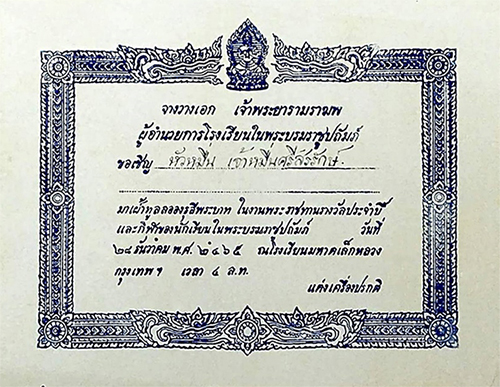 จางวางเอก เจ้าพระยารามราฆพ
ผู้อำนวยการโรงเรียนในพระบรมราชูปถัมภ์
ขอเชิญ หัวหมื่น เจ้าหมื่นศรีสรรักษ์.
มาเฝ้าทูลลอองธุลีพระบาท ในงานพระราชทานรางวัลประจำปี
และกีฬาของนักเรียนในพระบรมราชูปถัมภ์ วันที่
๒๔ ธันวาคม พ.ศ. ๒๔๖๕ ณโรงเรียนมหาดเล็กหลวง
กรุงเทพ ฯ เวลา ๔ ล.ท.
แต่งเครื่องปรกติ